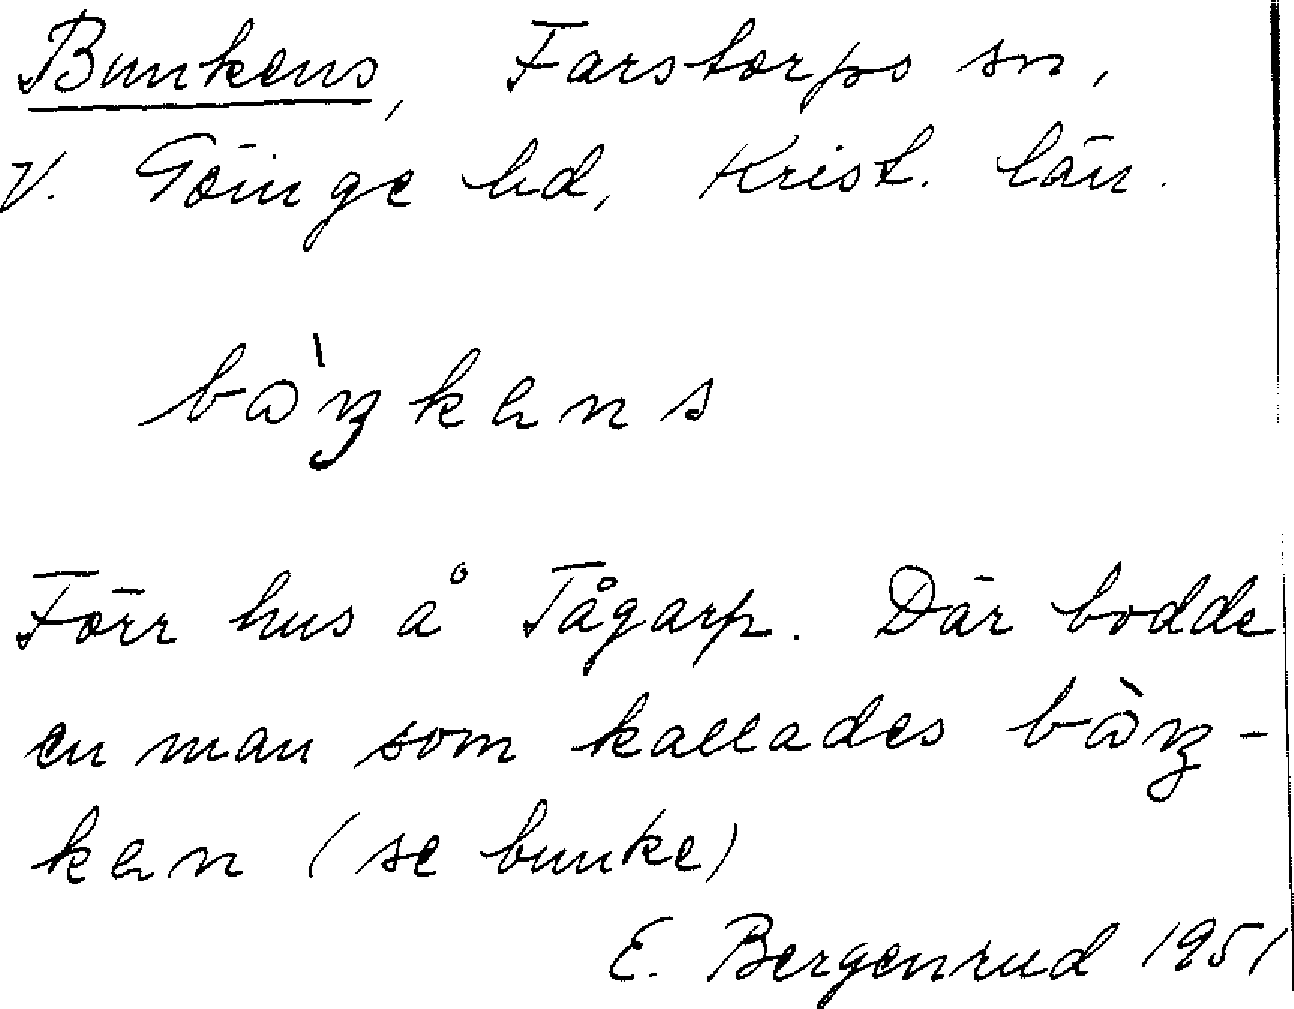 Bunkens, Farstorps sn,
V. Göinge hd, Krist. län.
bàŋkɐns
Förr hus å Tågarp. Där bodde
en man som kallades bàŋ-
kɐn (se bunke)
E. Bergenrud 1951